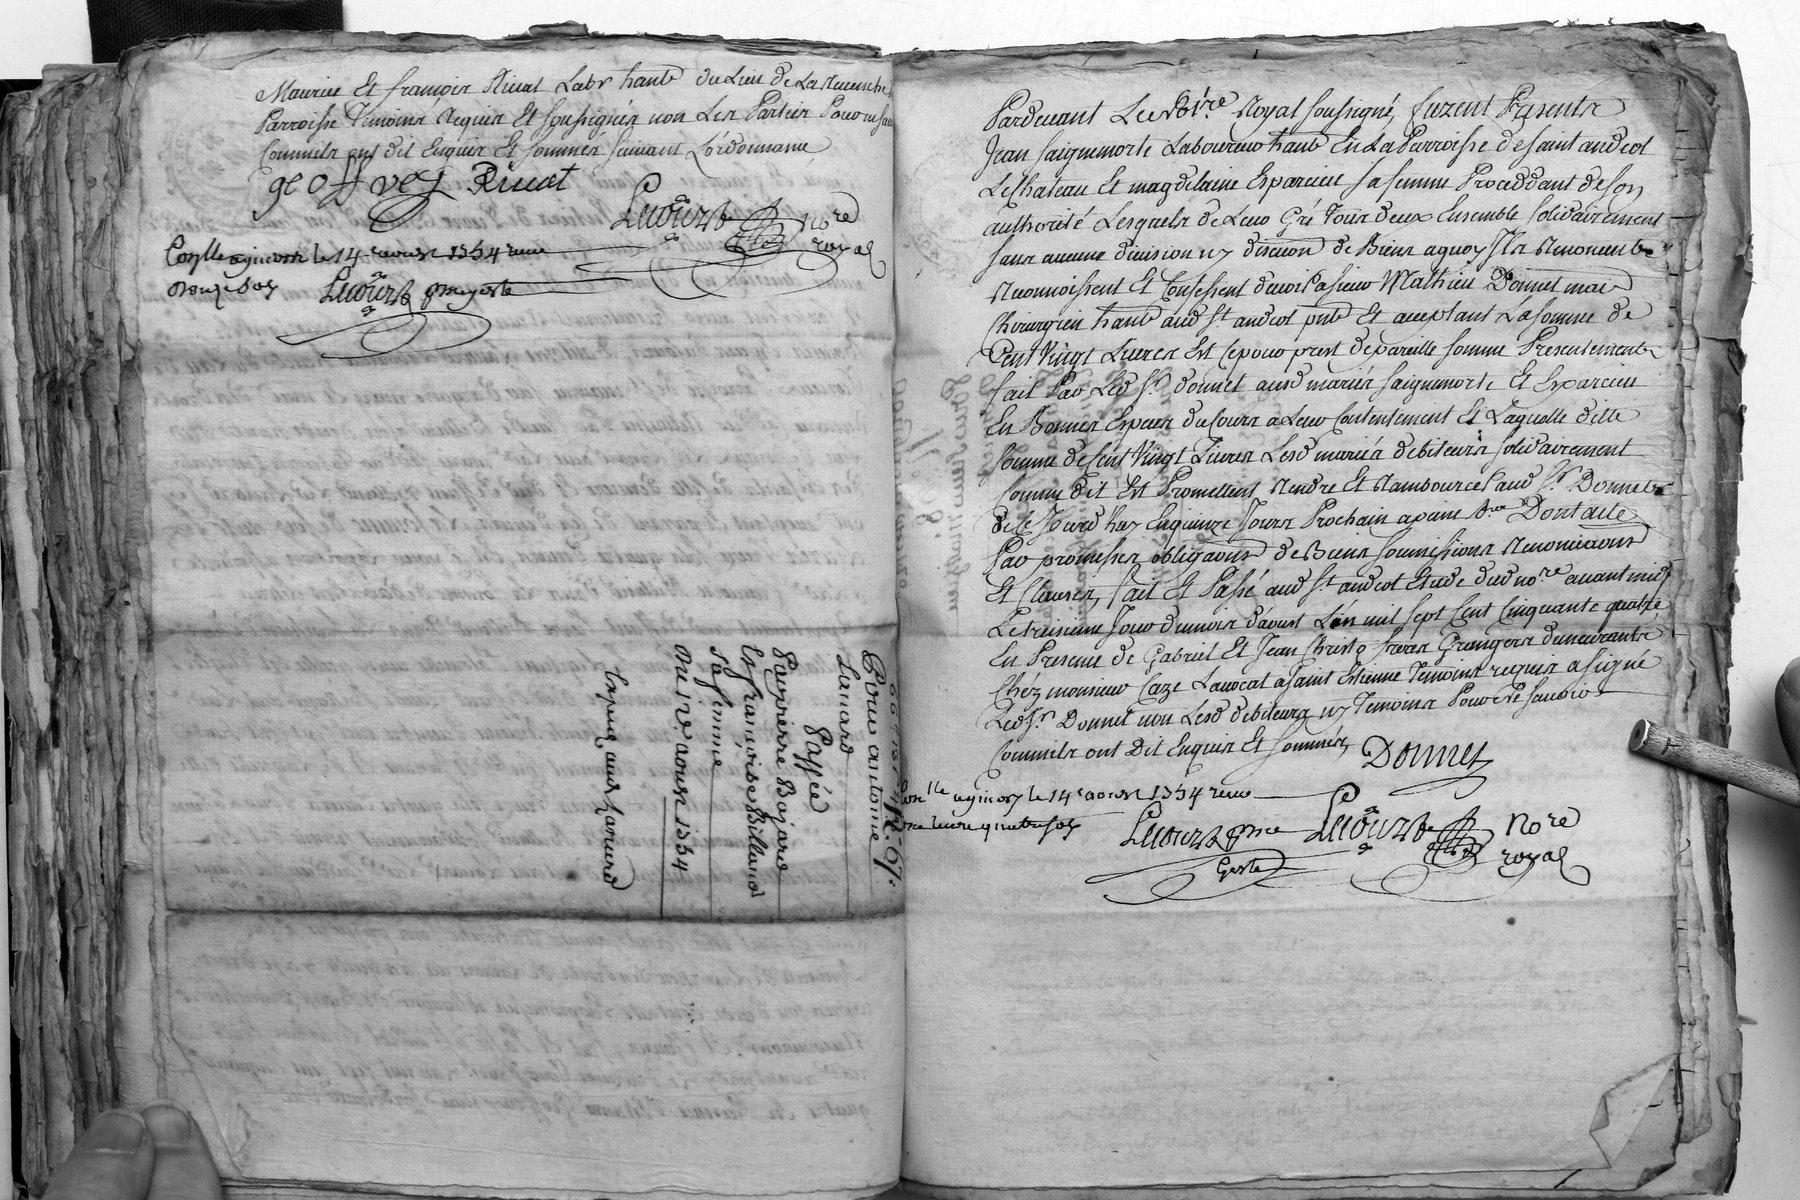 Maurice Et françois Riuat Labr habt du Lieu de La
Parroisse Temoins Requis Et soussignés non Les Parties Pour ne sau
Commils ont dit Enquis Et sommés suiuant Lordonnance
geoffrey Riuat
Lecourt nore
royal
Conlle a le 14e aoust 1754 receu
onze sols Lecourt
Pour antoine
Lanard
Passée
Par pierre Bajard
Et françoise Billand
sa femme
Du 12 aoust 1754
Pardeuant Le Notre Royal soussigné, furent Presents
Jean saignemorte Laboureur habt En La Parroisse de saint andeol
Le chateau Et magdelaine Esparcieu sa femme Procedant de son
authorité Lesquels de Leur Gré Tous deux Ensemble solidairement
sans aucune diuision ny discution de Biens a quoy Ils Renoncent
Reconnoissent Et Confessent deuoir a sieur Mathieu Donnet me
Chirurgien habt aud St andeol pnt Et aceptant La somme de
Cent Vingt Liures Est Ce pour prest de pareille somme Presentement
fait Par Led Sr donnet ausd mariés saignemorte Et Esparcieu
En Bonnes Especes du Cours a Leur Contentement Et Laquelle ditte
somme de Cent Vingt Liures Lesd mariés debiteurs solidairement
Comme dit Est Promettent Rendre Et Rambourcer aud Sr Donnet
de Ce Jourd'huy En quinze Jours Prochain a peine Dont acte
Par promesses obligaons de Biens soumissions Renonciaons
Et Clauses, fait Et Passé aud St andeol Etude dud nore auant midy
Le treisieme Jour du mois d'aoust L'an mil sept Cent Cinquante quatre
En Presence de Gabriel Et Jean Christo freres Grangers demeurants
Chéz monsieur Caze Lauocat a saint Estienne Temoins requis a signé
Led Sr Donnet non Lesd debiteurs ny Temoins Pour ne sauoir
Commils ont Dit Enquis Et sommés, Donnet
Conlle a le 14e aoust 1754 receu
une liure quatre sols
Lecourt Lecourt nore
royal